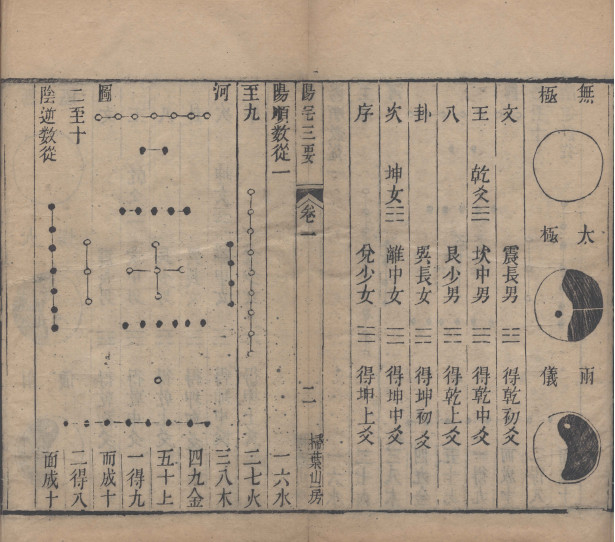 無極
太極
兩儀
文 震長男 得乾初爻
王 乾父 坎中男 得乾中爻
八 艮少男 得乾上爻
卦 巽長女 得坤初爻
次 坤母 離中女 得坤中爻
序 兌少女 得坤上爻
陽宅三要 卷一 二 掃葉山房
陽順數從一
至九
河
圖
二至十
陰逆數從
一六水
二七火
三八木
四九金
五十土
一得九
而成十
二得八
而成十